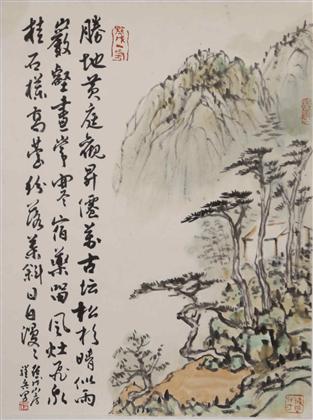 勝地黄庭觀昇僊萬古坛松杉晴似雨
巖壑晝常寒宿藥留風灶飛泉
挂石欄高紛落葉斜日自漫〻